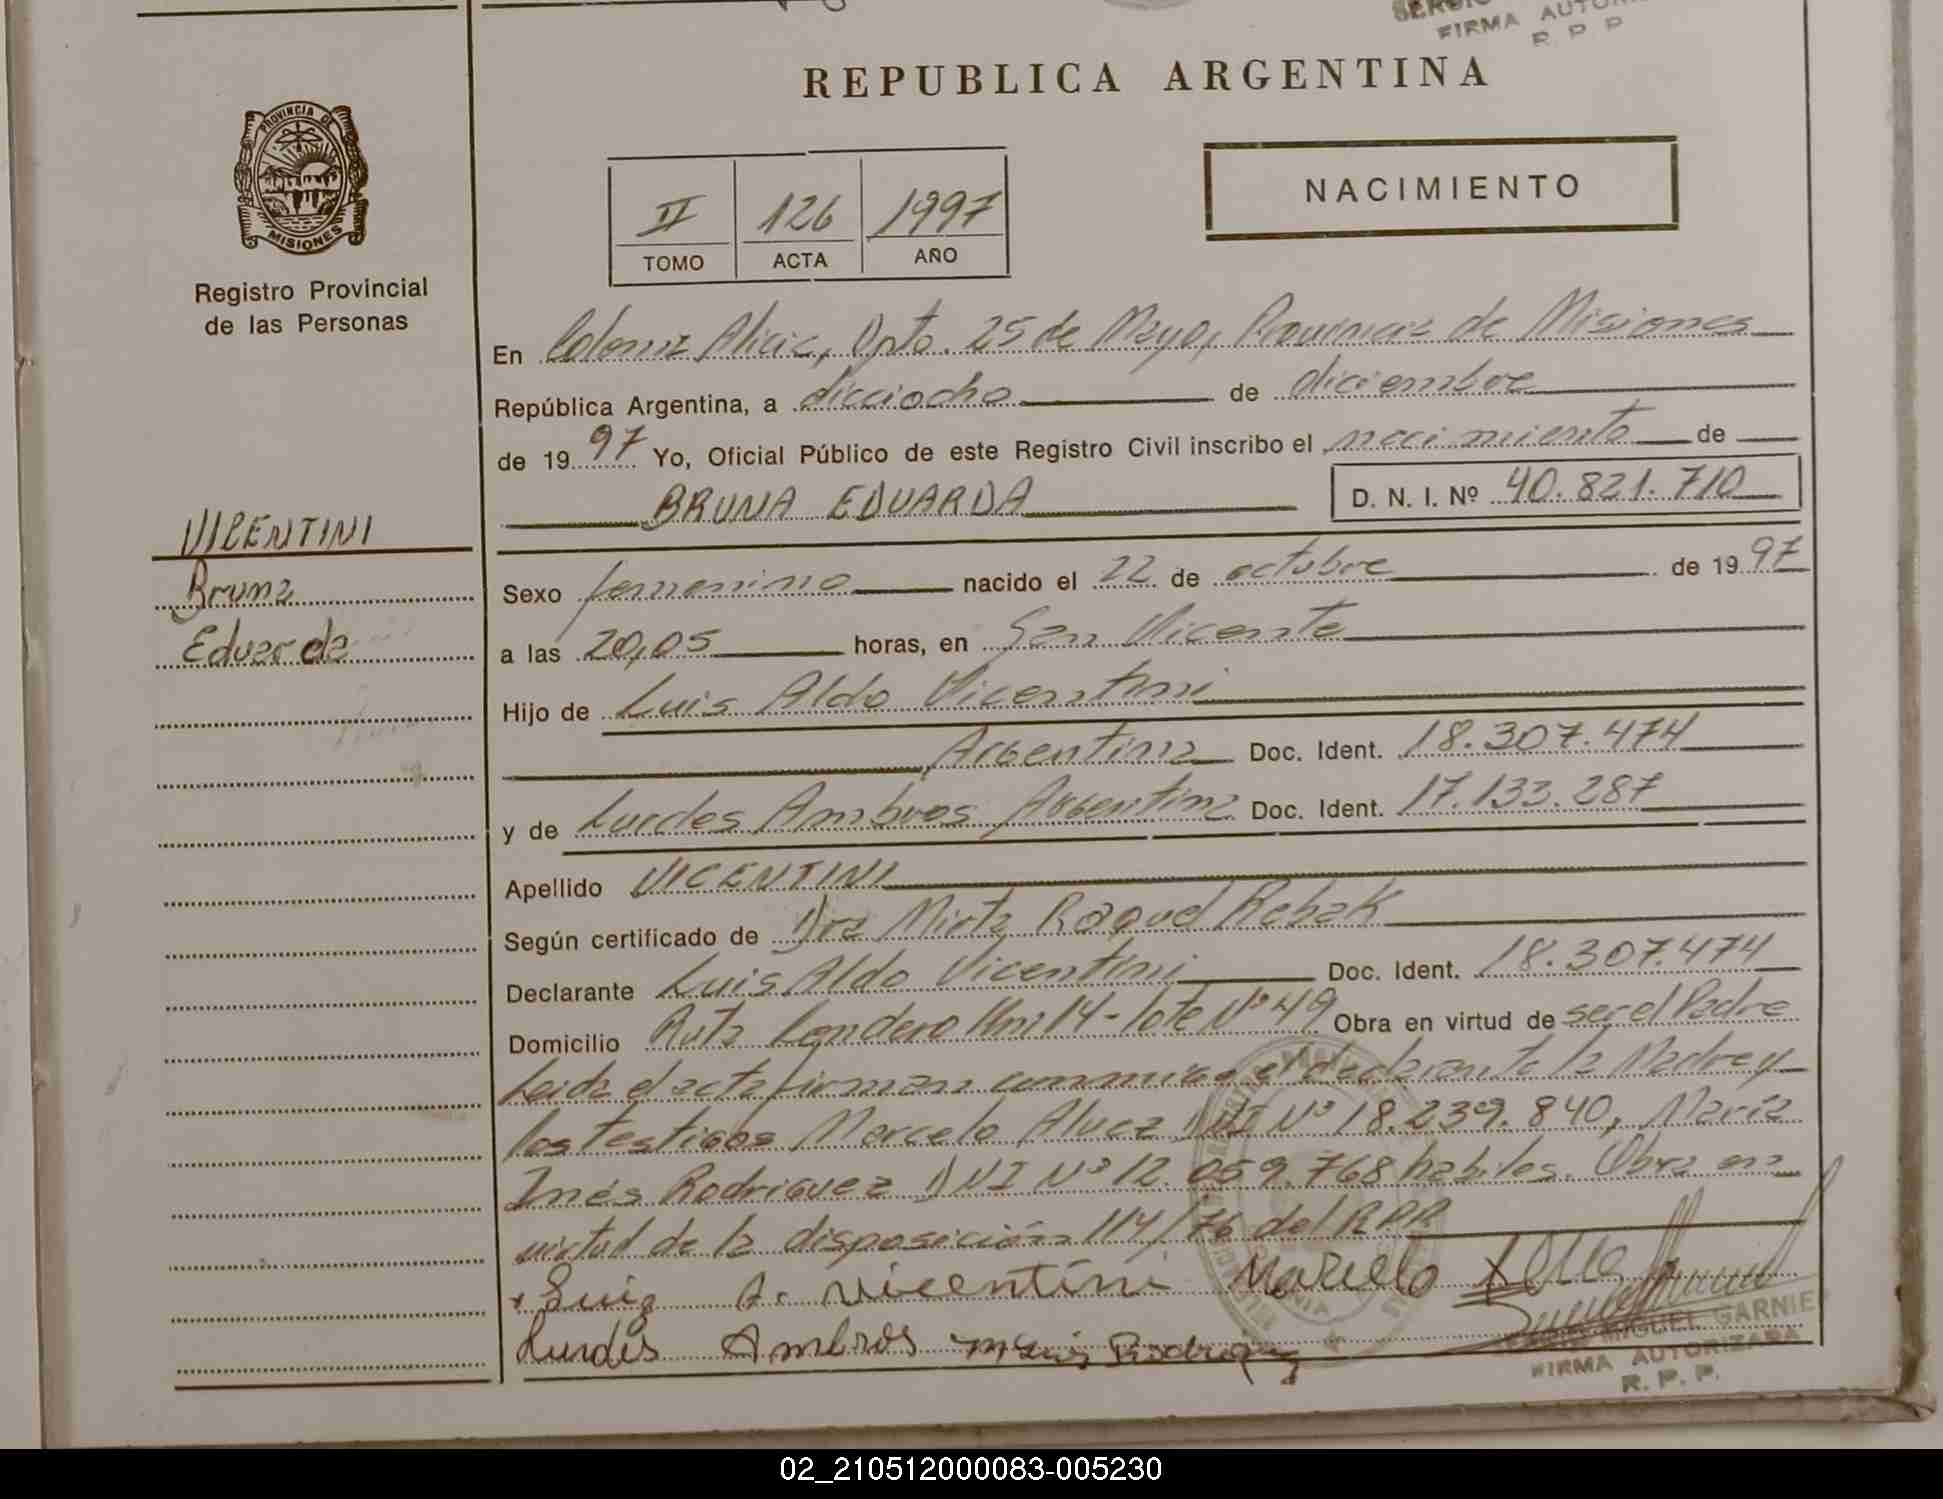 FIRMA AUTORI
R. P. P
REPUBLICA ARGENTINA
PROVINCIA DE
MISIONES
Registro Provincial
de las Personas
II 126 1997
TOMO ACTA AÑO
NACIMIENTO
En Colonia Alicia, Dpto. 25 de Mayo, Provincia de Misiones
República Argentina, a dieciocho de diciembre
de 1997 Yo, Oficial Público de este Registro Civil inscribo el nacimiento de
BRUNA EDUARDA D. N. I. Nº 40.821.710
VICENTINI
Bruna
Eduarda
Sexo femenino nacido el 22 de octubre de 1997
a las 20,05 horas, en San Vicente
Hijo de Luis Aldo Vicentini
Argentina Doc. Ident. 18.307.474
y de Lurdes Ambros Argentina Doc. Ident. 17.133.287
Apellido VICENTINI
Según certificado de Dra Mirta Raquel Rebak
Declarante Luis Aldo Vicentini Doc. Ident. 18.307.474
Domicilio Ruta Londero Km 14 - lote Nº 49 Obra en virtud de ser el Padre
Leida el acta firman conmigo el declarante la Madre y
los testigos Marcelo Alvez DNI Nº 18.239.840, María
Inés Rodriguez DNI Nº 12.059.768 habiles. Obra en
virtud de la disposición 114/76 del RPP
Luiz A. Vicentini Marcelo
Lurdes Ambros Maria Rodriguez
MIGUEL GARNIE
FIRMA AUTORIZADA
R. P. P.
02_210512000083-005230